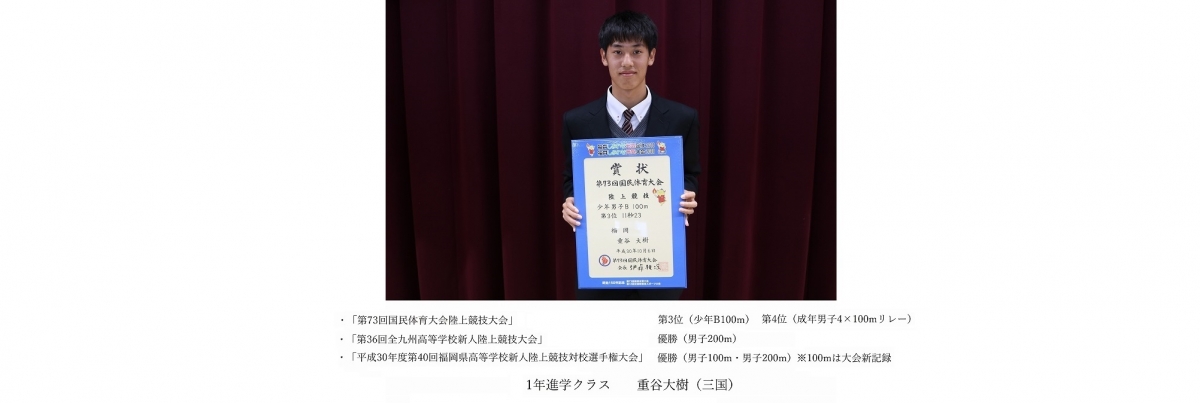 賞状
第73回国民体育大会
陸上競技
少年男子B 100m
第3位 11秒23
福岡
重谷 大樹
平成30年10月6日
第73回国民体育大会
会長
・「第73回国民体育大会陸上競技大会」 第3位（少年B100m） 第4位（成年男子4×100mリレー）
・「第36回全九州高等学校新人陸上競技大会」 優勝（男子200m）
・「平成30年度第40回福岡県高等学校新人陸上競技対校選手権大会」 優勝（男子100m・男子200m）※100mは大会新記録
1年進学クラス 重谷大樹（三国）